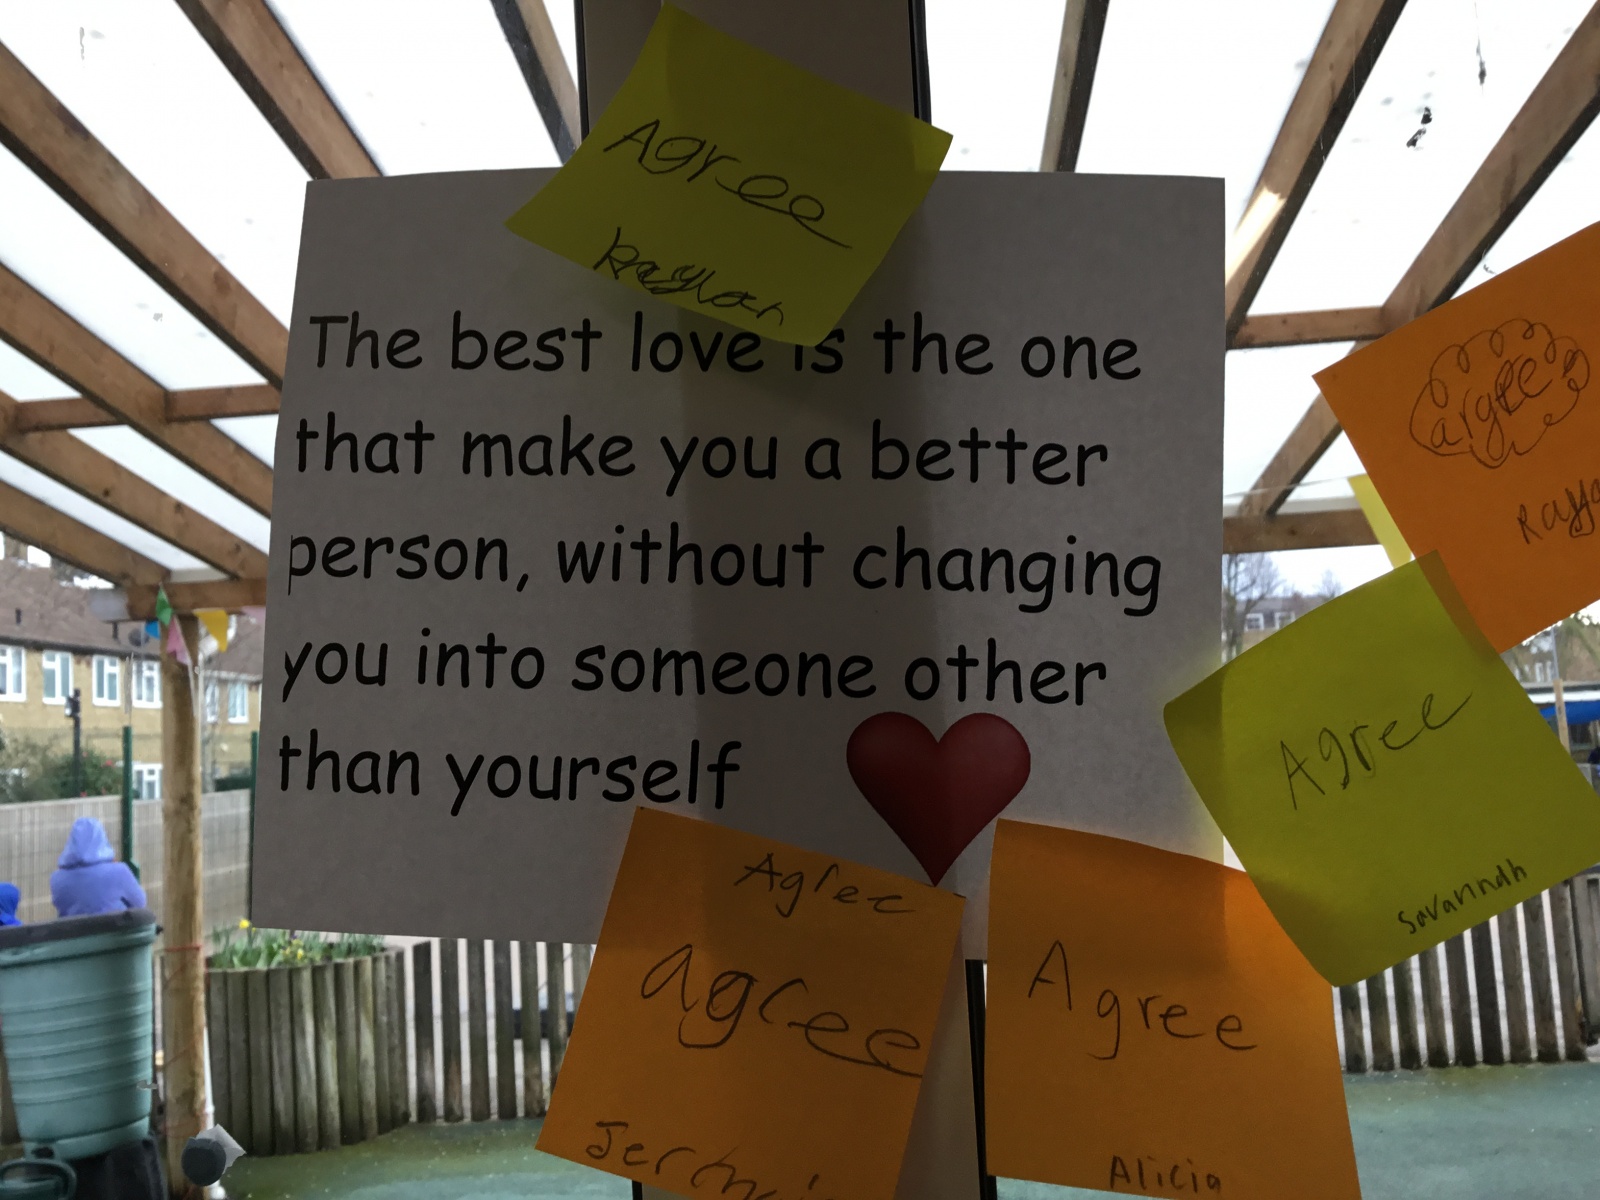 Agree
Raylan
The best love is the one
that make you a better
person, without changing
you into someone other
than yourself
argee
Agree
Savannah
Agree
agree
Agree
Alicia